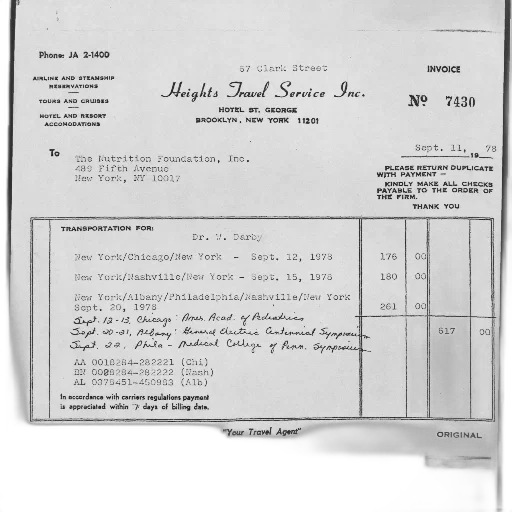 Phone: JA 2-1400
57 Clark Street
INVOICE
AIRLINE AND STEAMSHIP
RESERVATIONS
TOURS AND CRUISES
HOTEL AND RESORT
ACCOMODATIONS
Heights Travel Service Inc.
HOTEL ST. GEORGE
BROOKLYN, NEW YORK 11201
No 7430
Sept. 11, 19 78
To
The Nutrition Foundation, Inc.
489 Fifth Avenue
New York, NY 10017
PLEASE RETURN DUPLICATE
WITH PAYMENT —
KINDLY MAKE ALL CHECKS
PAYABLE TO THE ORDER OF
THE FIRM.
THANK YOU
TRANSPORTATION FOR:
Dr. W. Darby
New York/Chicago/New York - Sept. 12, 1978 176 00
New York/Nashville/New York - Sept. 15, 1978 180 00
New York/Albany/Philadelphia/Nashville/New York
Sept. 20, 1978 261 00
Sept. 12-13, Chicago: Amer. Acad. of Pediatrics
Sept. 20-21, Albany: General Electric Centennial Symposium 617 00
Sept. 22, Phila - Medical College of Penn. Symposium
AA 0016284-282221 (Chi)
284-282222 (Nash)
AL 0378451-450963 (Alb)
In accordance with carriers regulations payment
is appreciated within 7 days of billing date.
"Your Travel Agent"
ORIGINAL